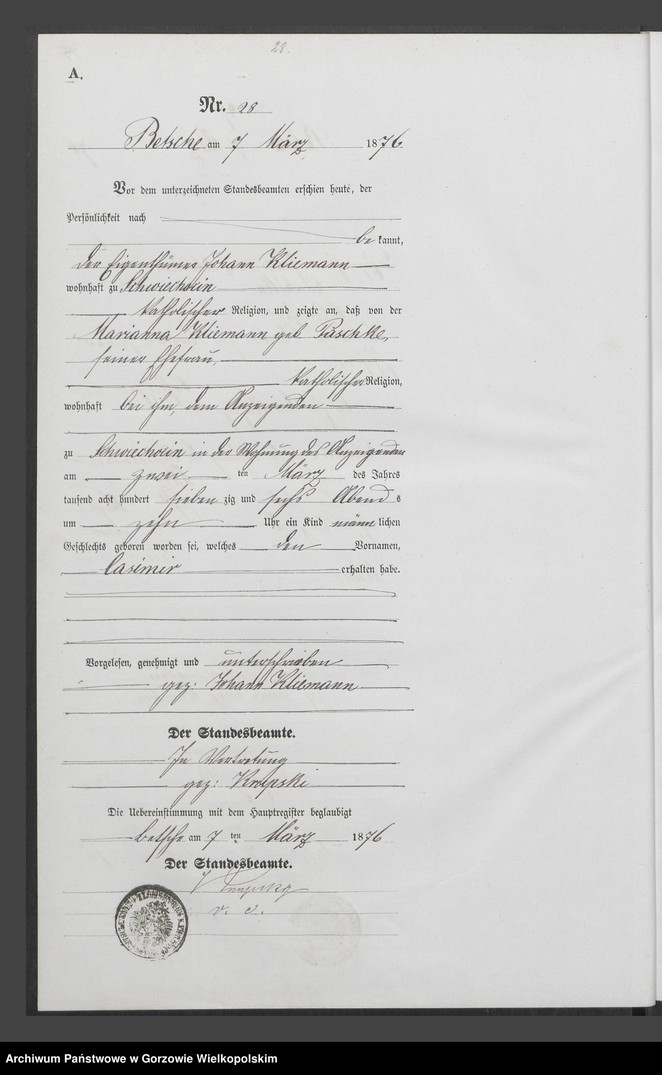 28.
A.
Nr. 28
Betsche am 7 März 1876
Vor dem unterzeichneten Standesbeamten erschien heute, der
Persönlichkeit nach
be kannt,
der Eigenthümer Johann Kliemann
wohnhaft zu Schwiechocin
katholischer Religion, und zeigte an, daß von der
Marianna Kliemann geb. Paschke,
seiner Ehefrau,
katholischer Religion,
wohnhaft bei ihm, dem Anzeigenden
zu Schwiechocin in der Wohnung des Anzeigenden
am zwei ten März des Jahres
tausend acht hundert sieben zig und sechs Abend s
um zehn Uhr ein Kind männ lichen
Geschlechts geboren worden sei, welches den Vornamen,
Casimir erhalten habe.
Vorgelesen, genehmigt und unterschrieben
gez. Johann Kliemann
Der Standesbeamte.
In Vertretung
gez: Krupski
Die Uebereinstimmung mit dem Hauptregister beglaubigt
Betsche am 7 ten März 1876
Der Standesbeamte.
Archiwum Państwowe w Gorzowie Wielkopolskim